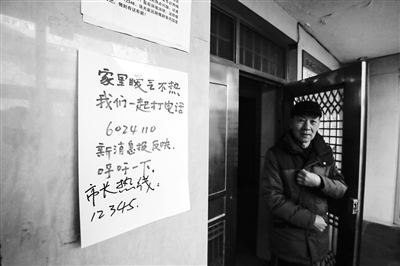 家里暖气不热
我们一起打电话
6024110
新消息报反映.
呼吁一下.
市长热线:
12345.